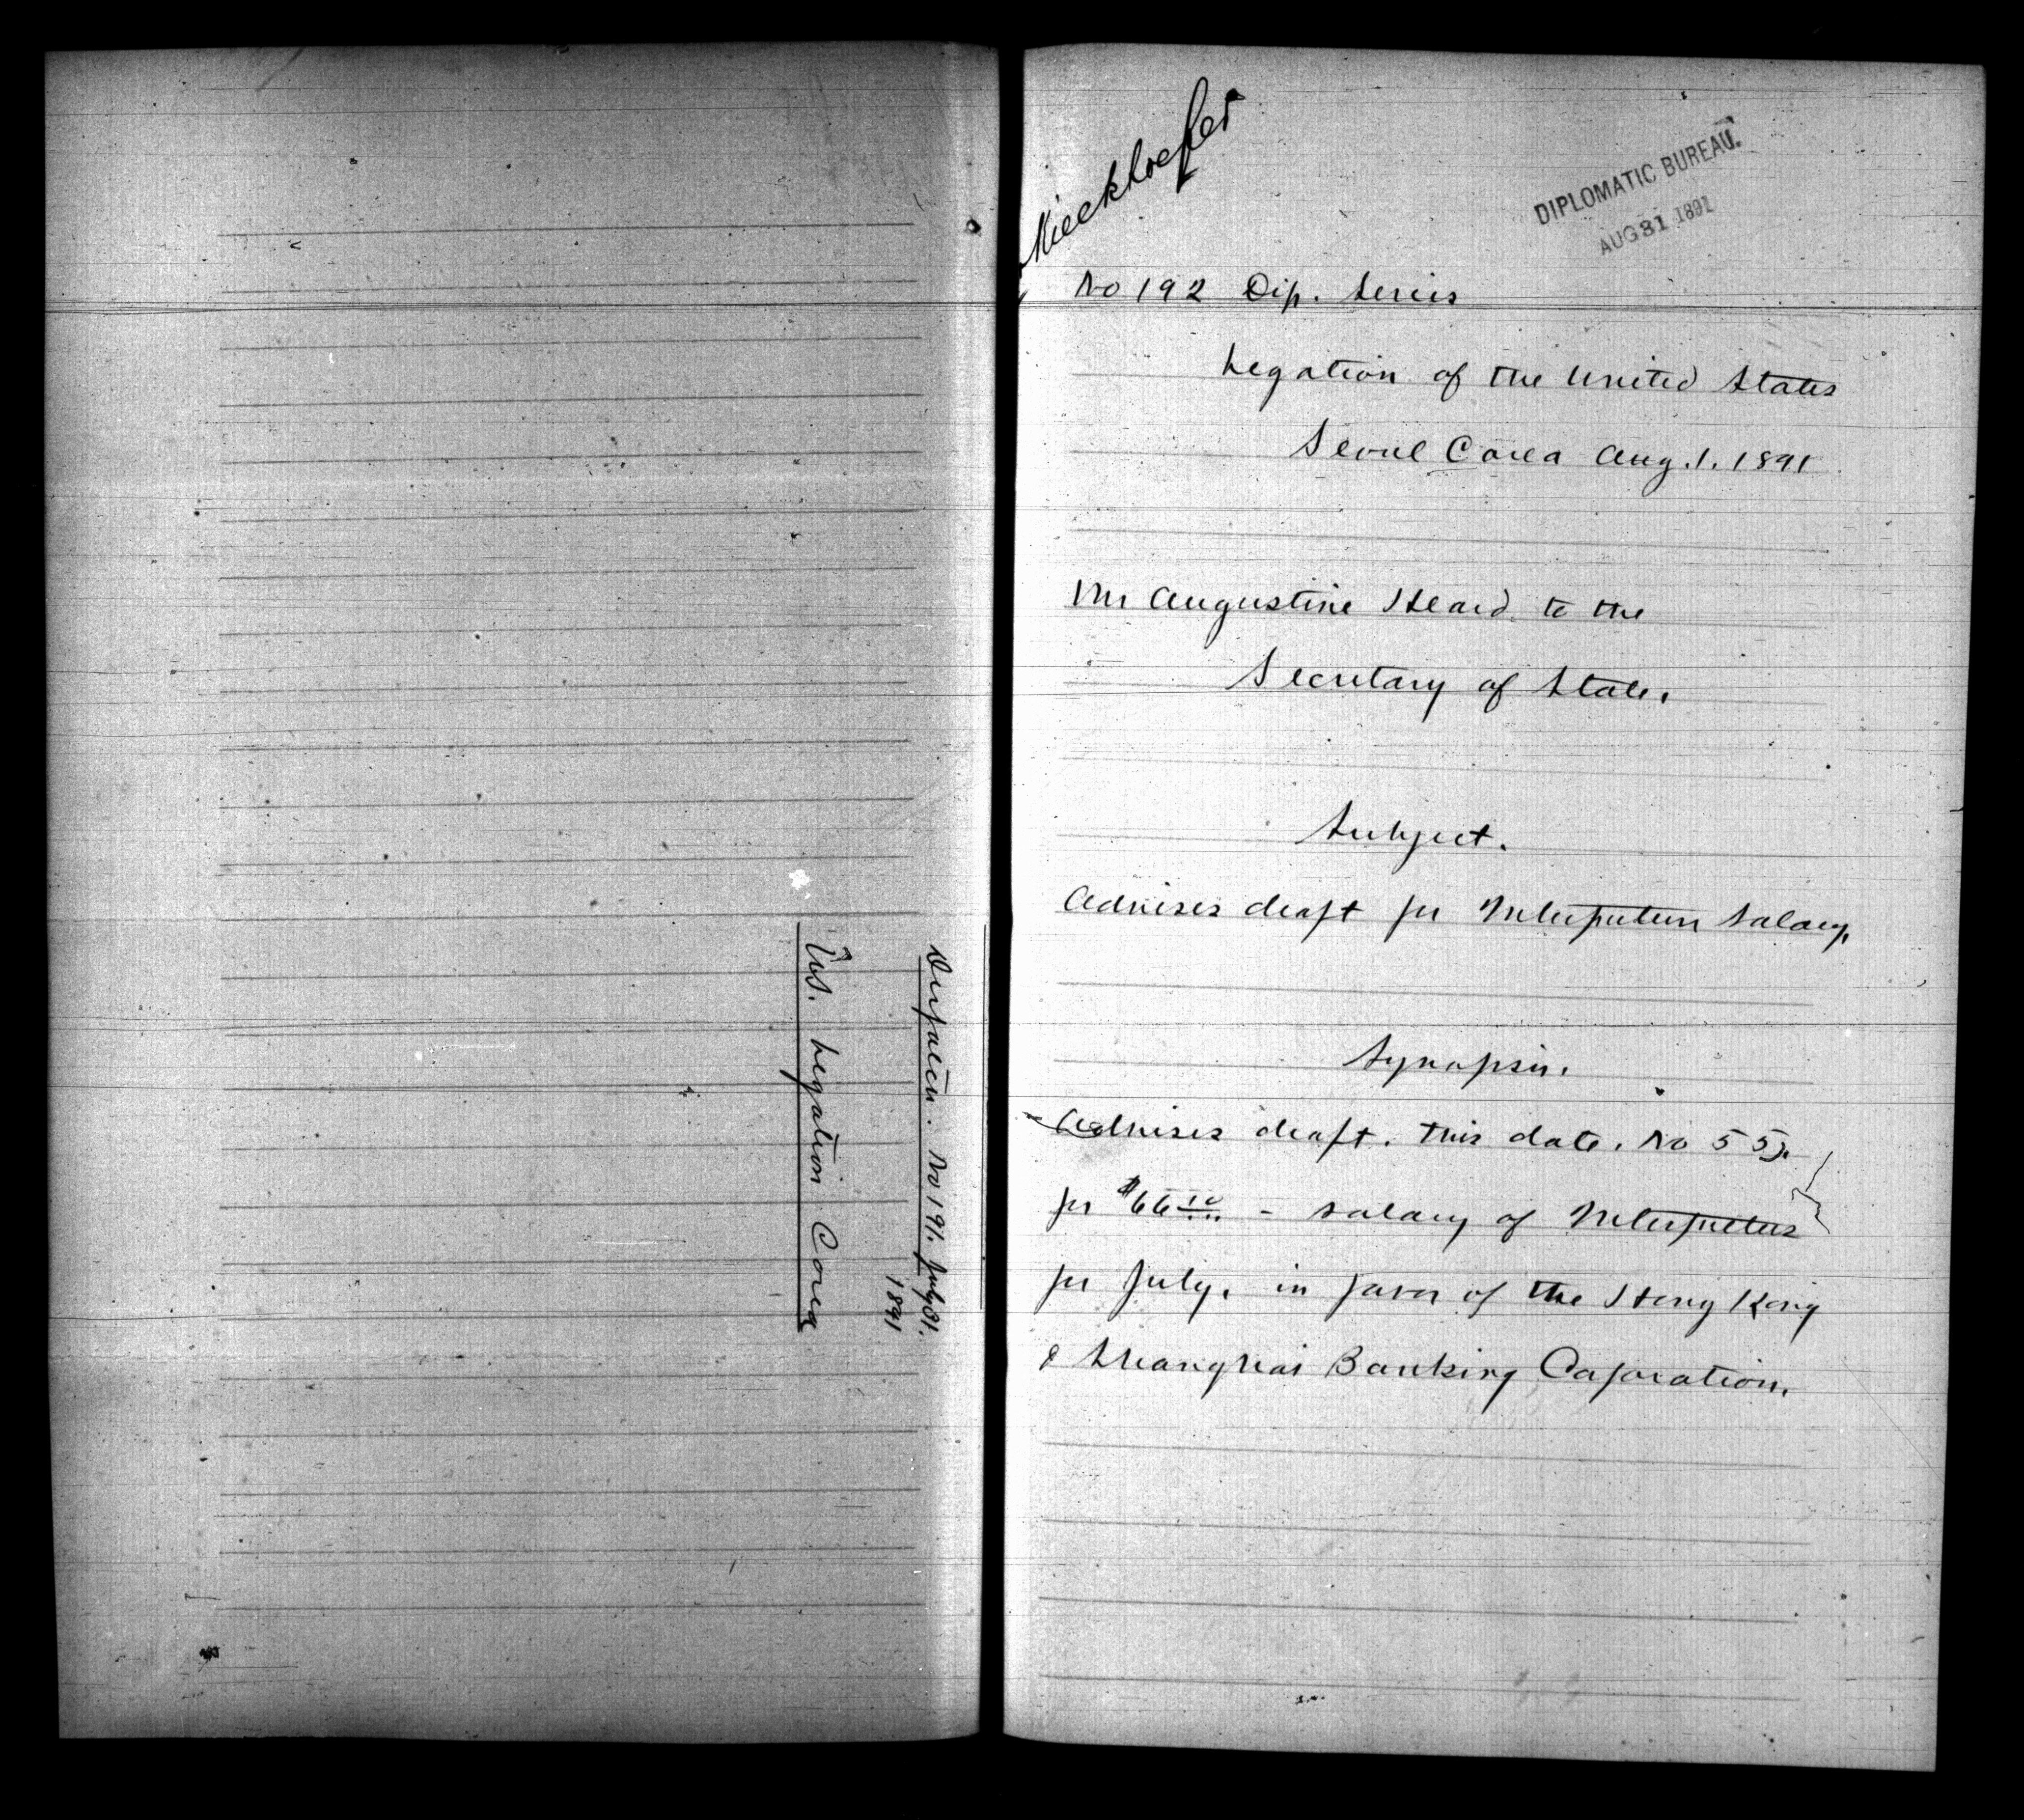 Despatch. No 191. July 31.
1891
U.S. Legation Corea
Mieckhoefer
DIPLOMATIC BUREAU.
AUG 31 1891
No 192 Dip. Series
Legation of the United States
Seoul Corea Aug. 1. 1891
Mr Augustine Heard to the
Secretary of State.
Subject.
Advises draft for Interpreters Salary.
Synopsis.
Advises draft. this date. No 55.
for $66 - salary of Interpreters
for July, in favor of the Hong Kong
& Shanghai Banking Corporation.